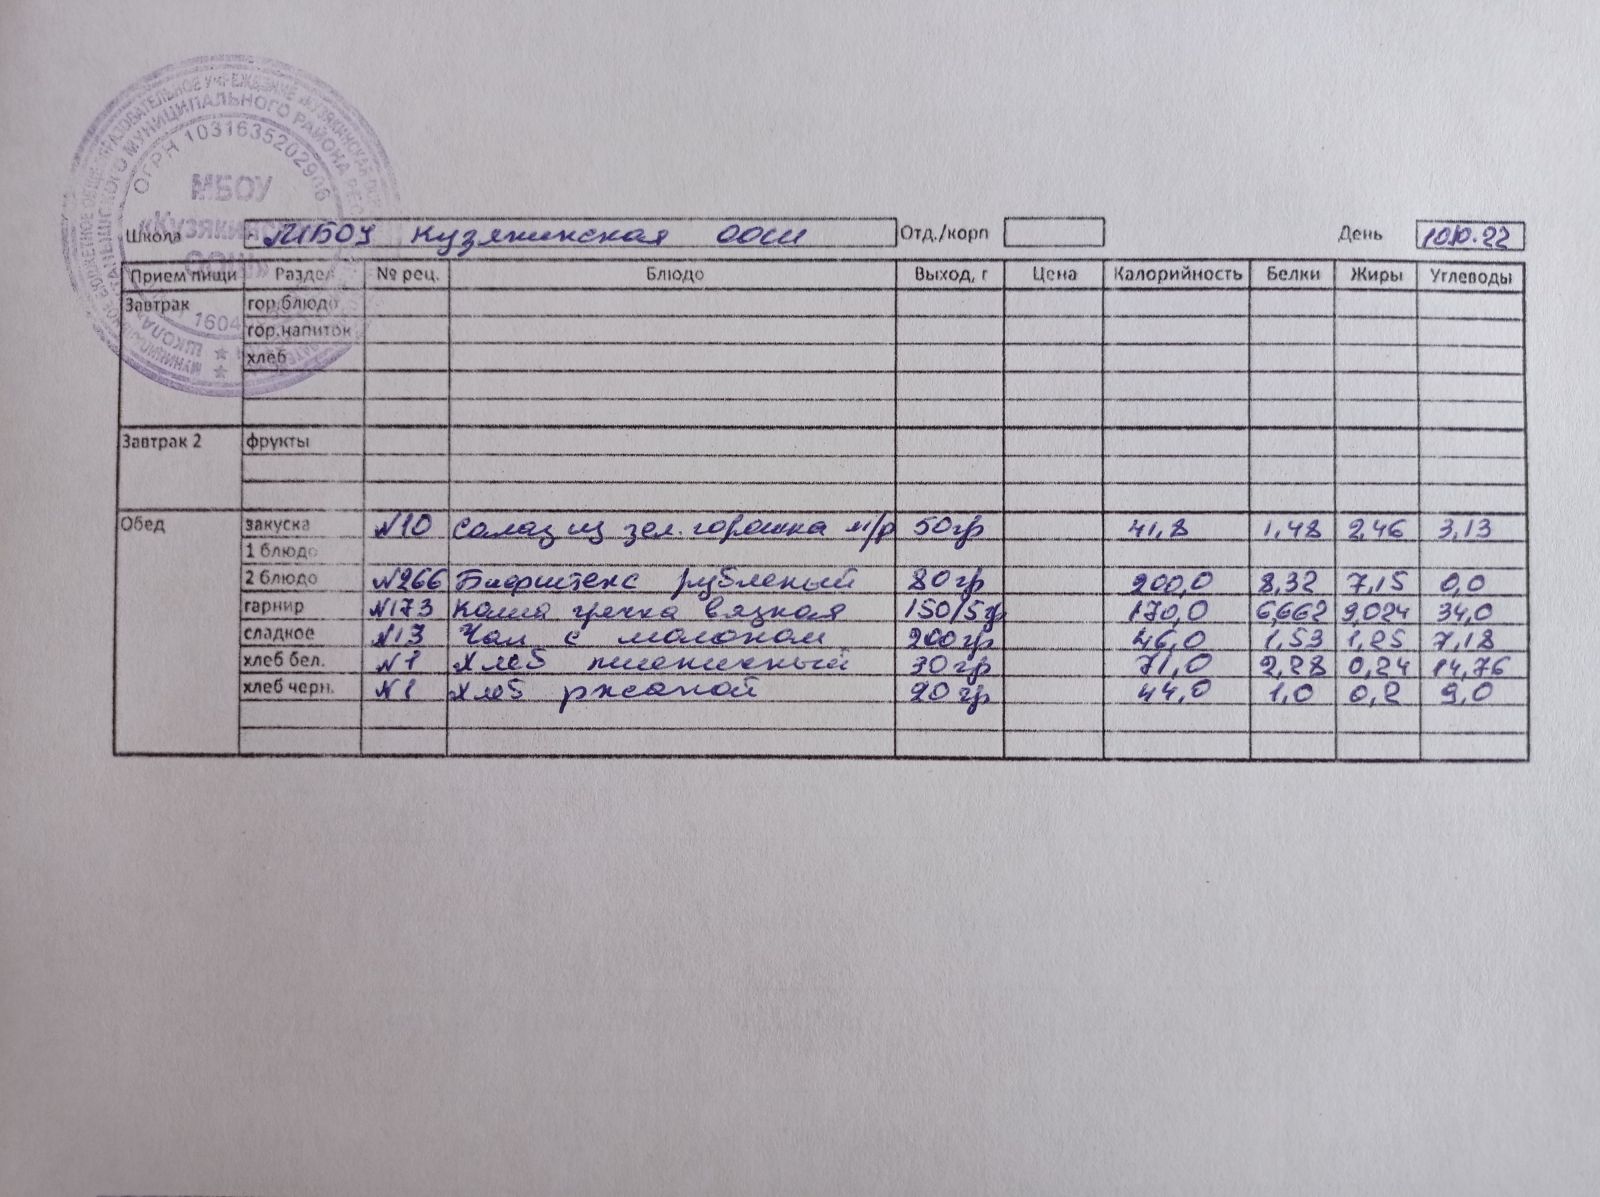 МУНИЦИПАЛЬНОГО РАЙОНА
ОГРН 1031635202906
МБОУ
Школа МБОУ Кузякинская ООШ Отд./корп День 10.10.22
Прием пищи Раздел № рец. Блюдо Выход, г Цена Калорийность Белки Жиры Углеводы
Завтрак гор.блюдо
гор.напиток
хлеб
Завтрак 2 фрукты
Обед закуска №10 Салат из зел. горошка м/р 50гр 41,8 1,48 2,46 3,13
1 блюдо
2 блюдо №266 Бифштекс рубленый 80гр 200,0 8,32 7,15 0,0
гарнир №173 Каша гречка вязкая 150/5гр 170,0 6,662 9,024 34,0
сладкое №13 Чай с молоком 200гр 46,0 1,53 1,25 7,18
хлеб бел. №1 Хлеб пшеничный 30гр 71,0 2,28 0,24 14,76
хлеб черн. №1 Хлеб ржаной 20гр 44,0 1,0 0,2 9,0